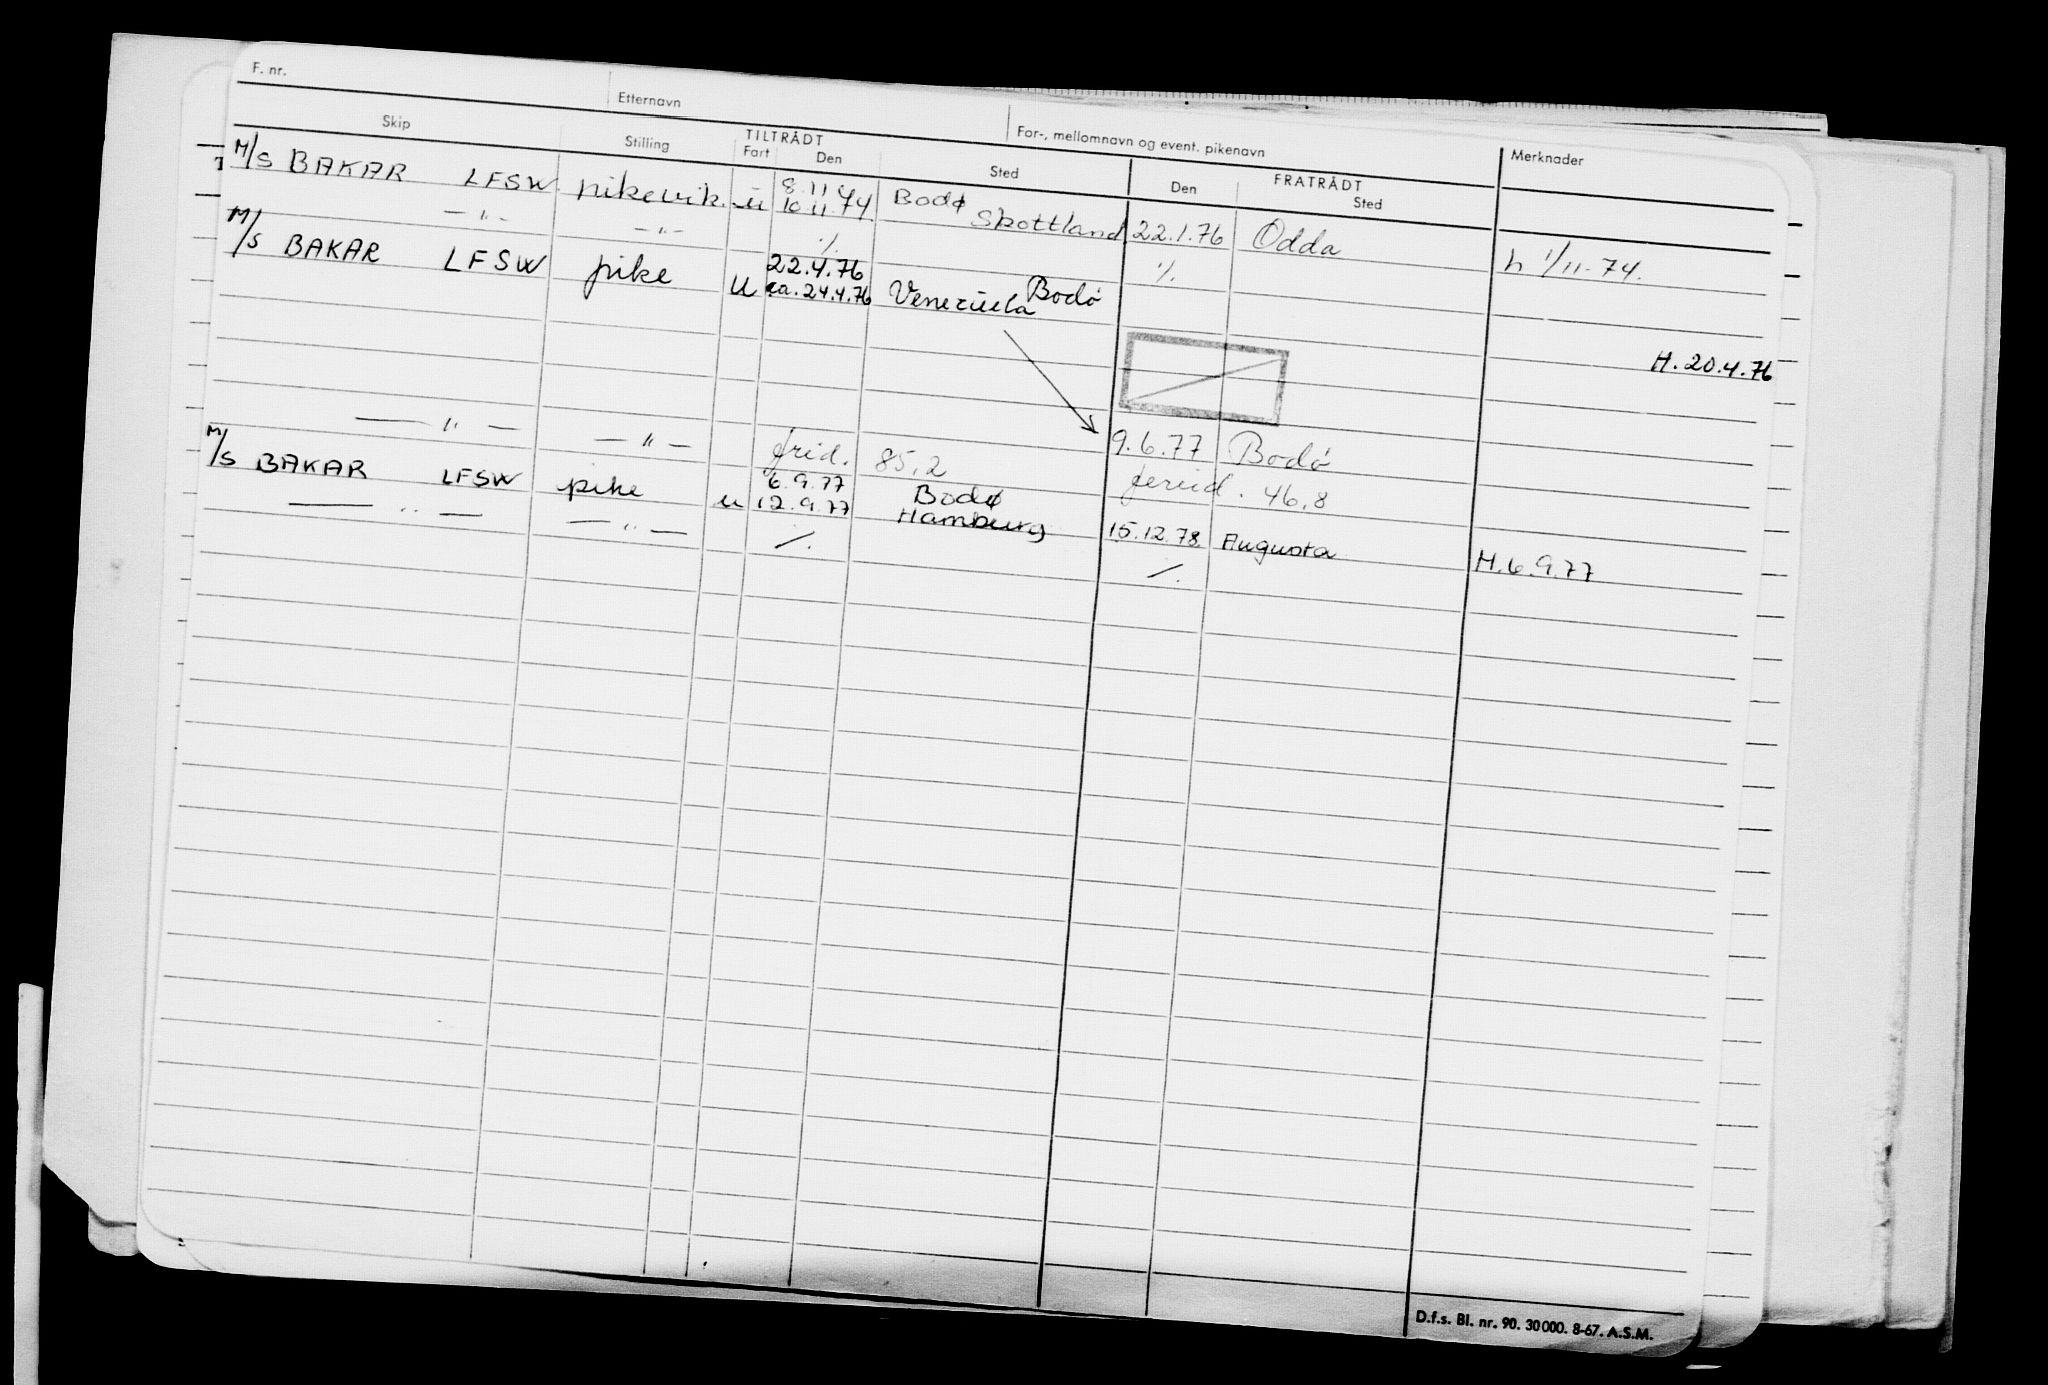 F. nr. Etternavn For-, mellomnavn og event. pikenavn
Skip Stilling TILTRÅDT FRATRÅDT Merknader
Fart Den Sted Den Sted
M/S BAKAR LFSW pikevik. u 8.11.74 Bodø
10.11.74 Skottland 22.1.76 Odda h 1/11-74.
—"— —"— ·/. ·/.
M/S BAKAR LFSW pike 22.4.76 Bodø
u ca. 24.4.76 Venezuela H. 20.4.76
9.6.77 Bodø
—"— —"— frid. 85,2 ferieid. 46,8
M/S BAKAR LFSW pike 6.9.77 Bodø
u 12.9.77 Hamburg 15.12.78 Augusta H. 6.9.77
—"— —"— ·/. ·/.
D.f.s. Bl. nr. 90. 30000. 8-67. A.S.M.